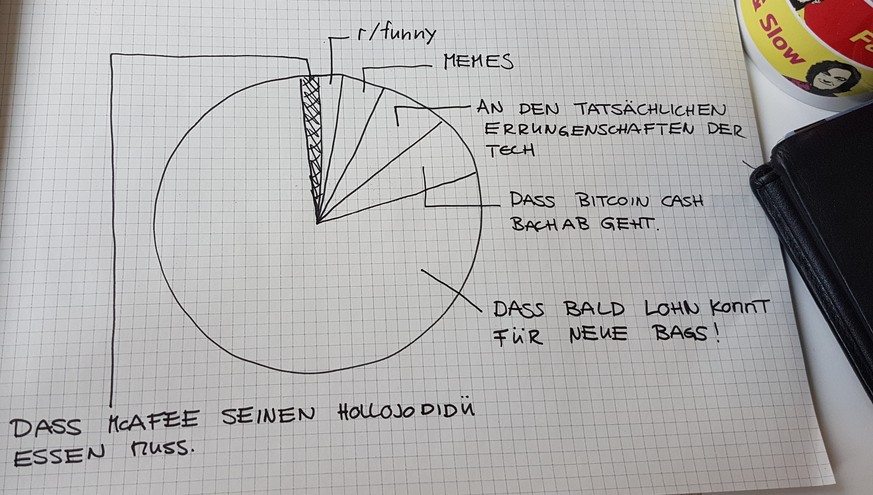 r/funny
MEMES
AN DEN TATSÄCHLICHEN
ERRUNGENSCHAFTEN DER
TECH
DASS BITCOIN CASH
BACHAB GEHT.
DASS BALD LOHN KONNT
FÜR NEUE BAGS!
DASS McAFEE SEINEN HOLLOJODIDÜ
ESSEN MUSS.
& Slow